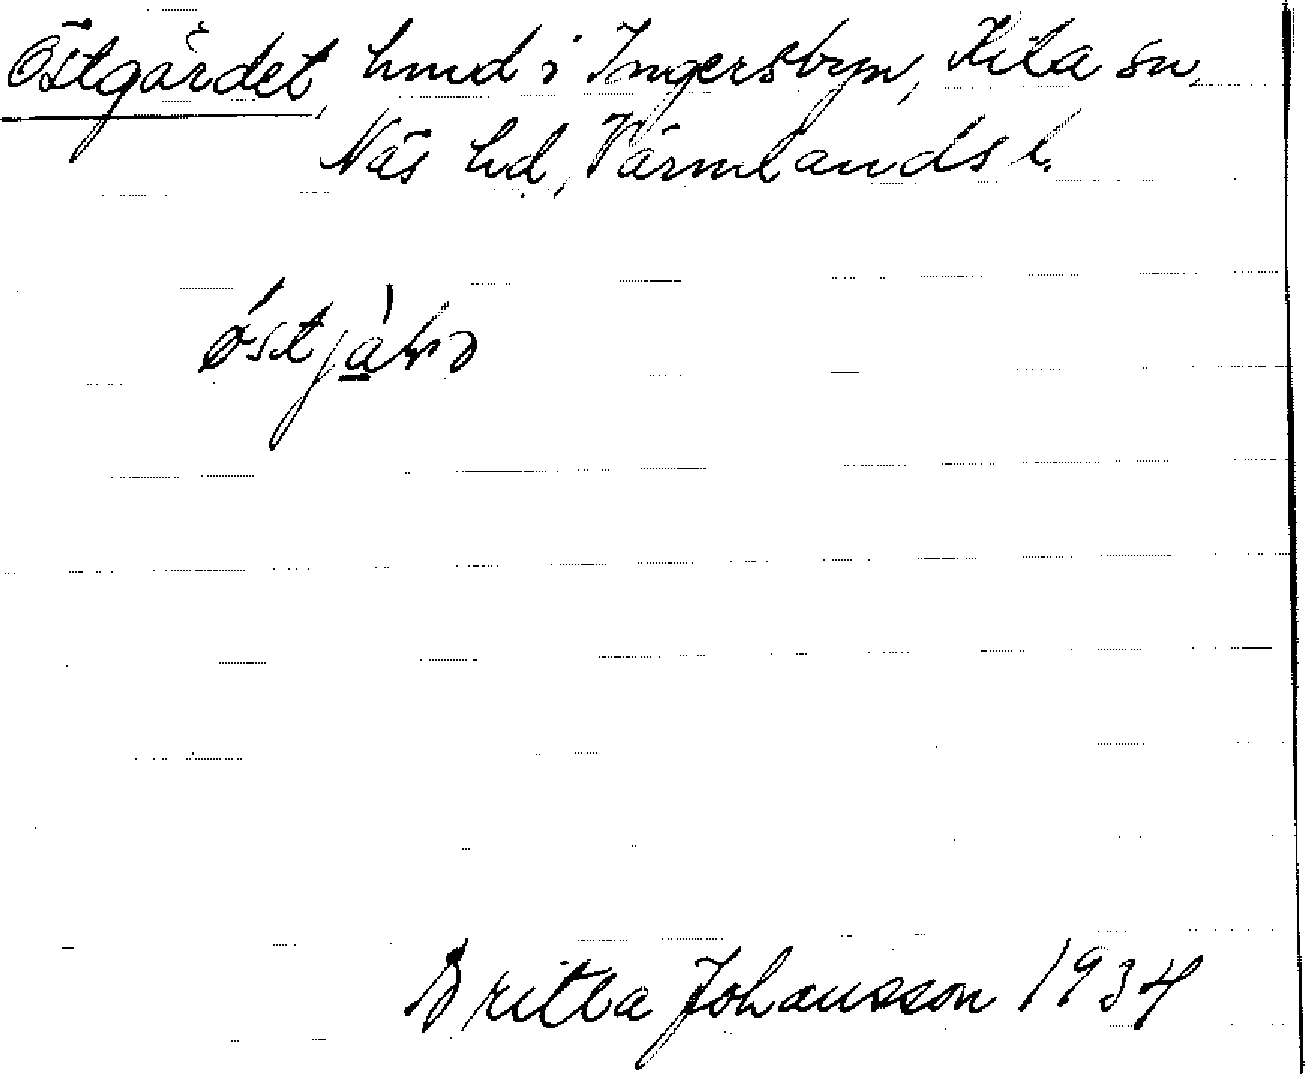 Östgärdet, hmd i Ingersbyn, Kila sn,
Näs hd, Värmlands l.
Britta Johansson 1934